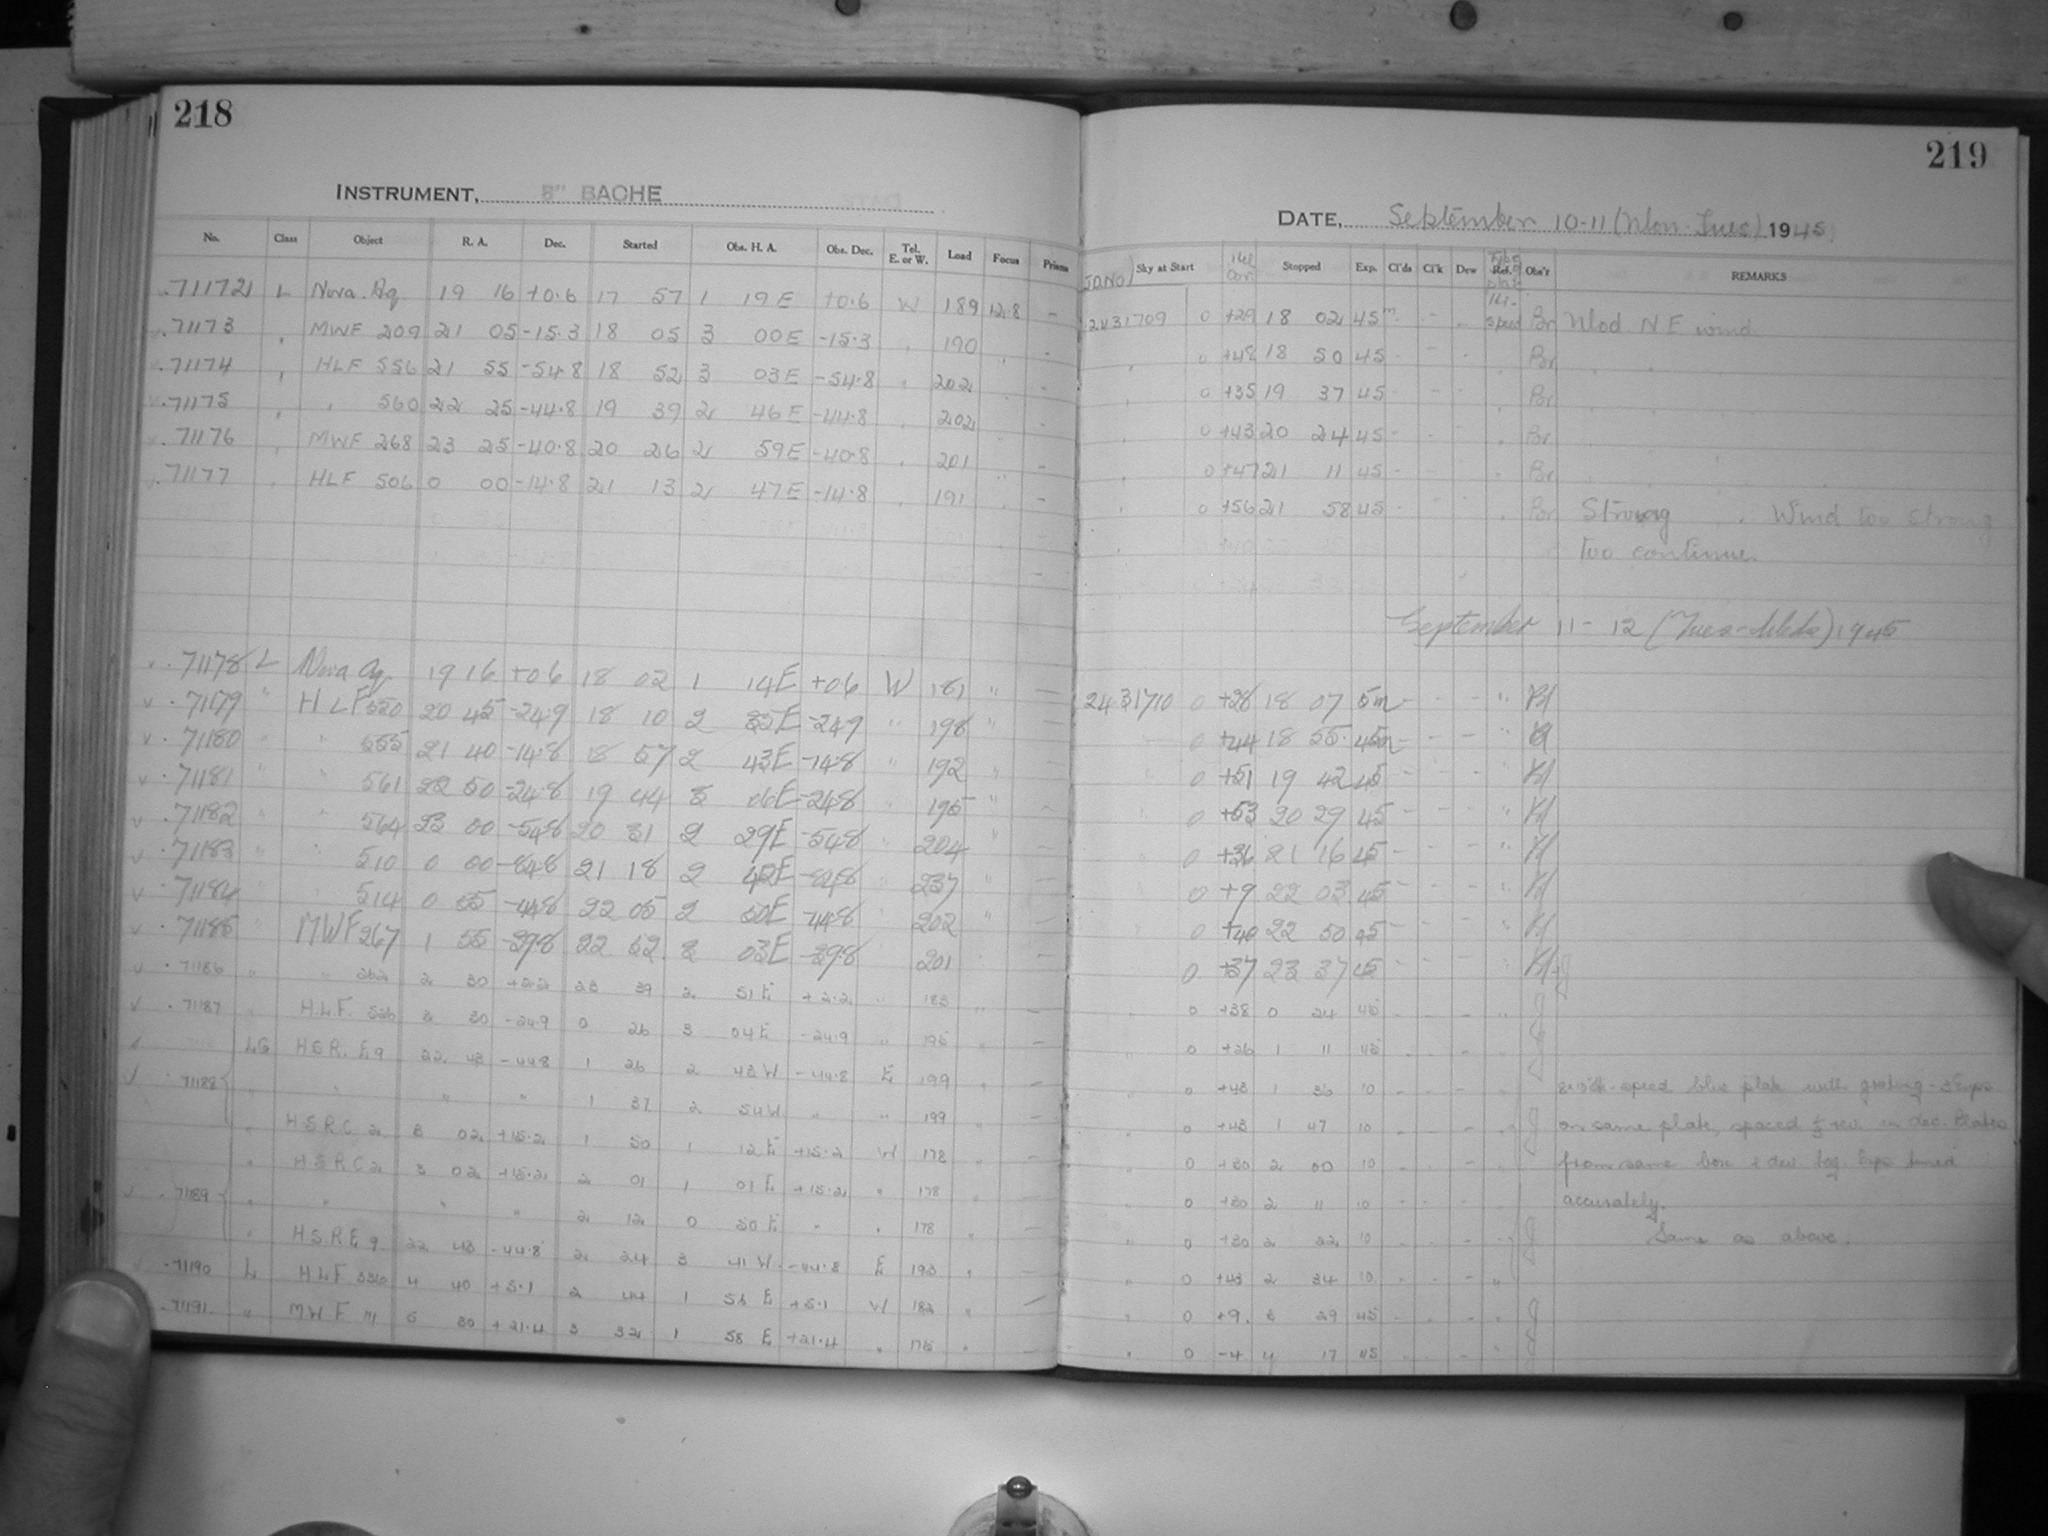 218
INSTRUMENT, 8" BACHE
No. Class Object R. A. Dec. Started Obs. H. A. Obs. Dec. Tel. E. or W. Load Focus Prisms
71172 L Nova Aq. 19 16 +0.6 17 57 1 19 E +0.6 W 189 12.8 -
71173 " MWF 209 21 05 -15.3 18 05 3 00 E -15.3 " 190 " -
71174 " HLF 556 21 55 -54.8 18 52 3 03 E -54.8 " 202 " -
71175 " " 560 22 25 -44.8 19 39 2 46 E -44.8 " 202 " -
71176 " MWF 268 23 25 -40.8 20 26 2 59 E -40.8 " 201 " -
71177 " HLF 506 0 00 -14.8 21 13 2 47 E -14.8 " 191 " -
71178 L Nova Aq. 19 16 +06 18 02 1 14 E +06 W 181 " -
71179 " HLF 520 20 45 -24.9 18 10 2 35 E -24.9 " 198 " -
71180 " " 555 21 40 -14.8 18 57 2 43 E -14.8 " 192 " -
71181 " " 561 22 50 -24.8 19 44 3 06 E -24.8 " 195 " -
71182 " " 564 23 00 -54.8 20 31 2 29 E -54.8 " 204 " -
71183 " " 510 0 00 -84.8 21 18 2 42 E -84.8 " 237 " -
71184 " " 514 0 55 -44.8 22 05 2 50 E -44.8 " 202 " -
71185 " MWF 267 1 55 -39.8 22 52 3 03 E -39.8 201 " -
71186 " " 262 2 30 +2.2 23 39 2 51 E +2.2 " 183 " -
71187 " H.L.F. 526 3 30 -24.9 0 26 3 04 E -24.9 " 195 " -
LG H.S.R. E9 22 43 -44.8 1 26 2 43 W -44.8 E 199 " -
71188 " " " " 1 37 2 54 W " " 199 -
" H.S.R.C 2 3 02 +15.2 1 50 1 12 E +15.2 W 178 " -
" H.S.R.C 2 3 02 +15.2 2 01 1 01 E +15.2 " 178 " -
71189 " " " " 2 12 0 50 E " " 178 " -
" H.S.R.E 9 22 43 -44.8 2 24 3 41 W -44.8 E 193 " -
71190 L HLF 4 40 +5.1 2 44 1 56 E +5.1 W 182 " -
71191 " MWF 111 5 30 +21.4 3 32 1 58 E +21.4 " 175 " -
219
DATE, September 10-11 (Mon-Tues) 1945
J.D. No. Sky at Start Stopped Exp. Cl'ds Cl'k Dew Ref. Obs'r REMARKS
2431709 0 +29 18 02 45m - - - speed Br Mod. N.E wind.
" 0 +48 18 50 45 - - - " Br " "
" 0 +35 19 37 45 - - - " Br
" 0 +43 20 24 45 - - - " Br
" 0 +47 21 11 45 - - - " Br
" 0 +56 21 58 45 - - - " Br Strong " . Wind too strong
too continue.
September 11-12 (Tues-Weds) 1945
2431710 0 +28 18 07 5m - - - "
" 0 +44 18 55 45m - - - "
" 0 +51 19 42 45 - - - "
" 0 +53 20 29 45 - - - "
" 0 +36 21 16 45 - - - "
" 0 +9 22 03 45 - - - "
" 0 +40 22 50 45 - - - "
0 +37 23 37 45 - - - "
" 0 +38 0 24 45 - - - "
" 0 +26 1 11 45 - - - "
" 0 +43 1 36 10 - - - speed blue plate with grating - 3 Exps
" 0 +43 1 47 10 - - - on same plate, spaced in dec. Plates
" 0 +30 2 00 10 - - - from same box & dev. tog. Exps timed
" 0 +30 2 11 10 - - - accurately.
" 0 +30 2 22 10 - - - Same as above.
" 0 +43 2 34 10 - - - "
" 0 +9 3 29 45 - - - "
" 0 -4 4 17 45 - - - "